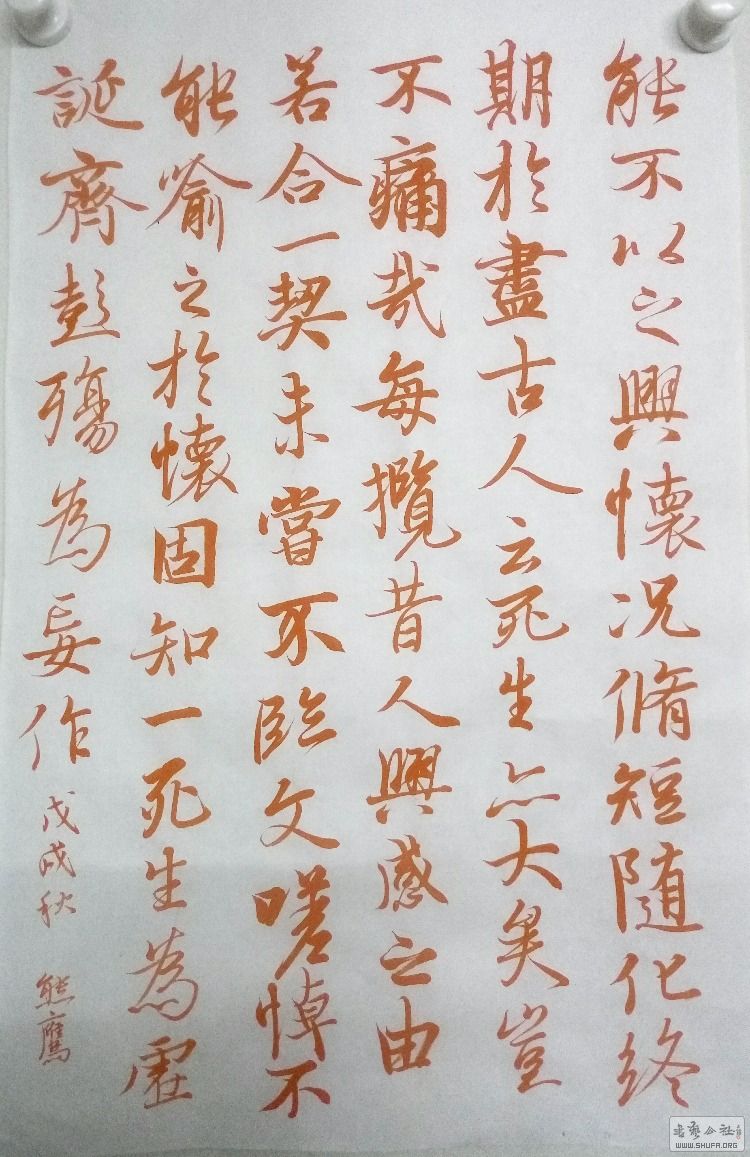 能不以之興懷况脩短随化終
期於盡古人云死生亦大矣豈
不痛哉每攬昔人興感之由
若合一契未嘗不臨文嗟悼不
能喻之於懷固知一死生為虛
誕齊彭殤為妄作 戊戌秋 熊鷹
书艺公社
WWW.SHUFA.ORG